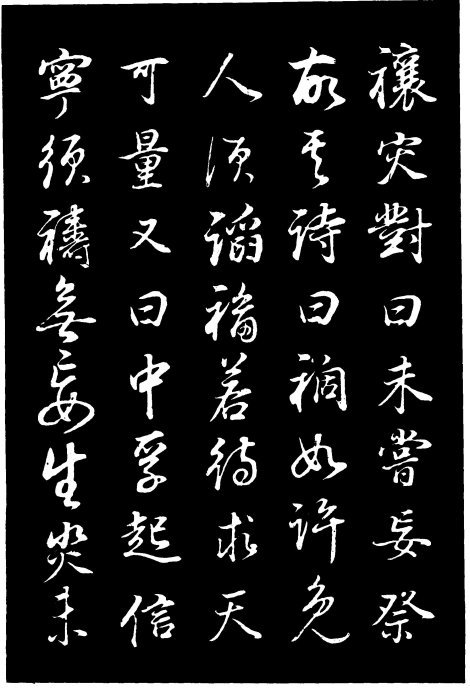 禳灾對曰未嘗妄祭
故其詩曰禍如許免
人須謟福若待求天
可量又曰中孚起信
寧須禱無妄生災未